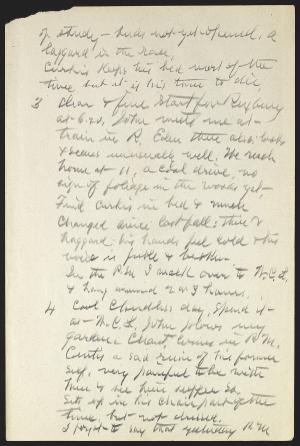 of study - buds not yet opened. A
laggard in the race.
Curtis keeps his bed most of the
time but it is his time to die,
3 Clear & fine start for Roxbury
at 6.20, John meets me at
train in R. Eden there also; looks
& seems unusually well. We reach
home at 11, a cool drive, no
sign of foliage in the woods yet.
Find Curtis in bed & much
changed since last fall; thin &
haggard; his hands feel cold & his
voice is feeble & broken.
In the P.M. I walk over to W.C.L.
& hang around 2 or 3 hours.
4 Cool cloudless day, spend it
at W.C.L. John plows my
garden. Chant, comes in P.M.
Curtis a sad ruin of his former
self, very painful to be with
him & see him suffer so.
Sits up in his chair part of the
time, but not dressed.
I forgot to say that yesterday P.M.